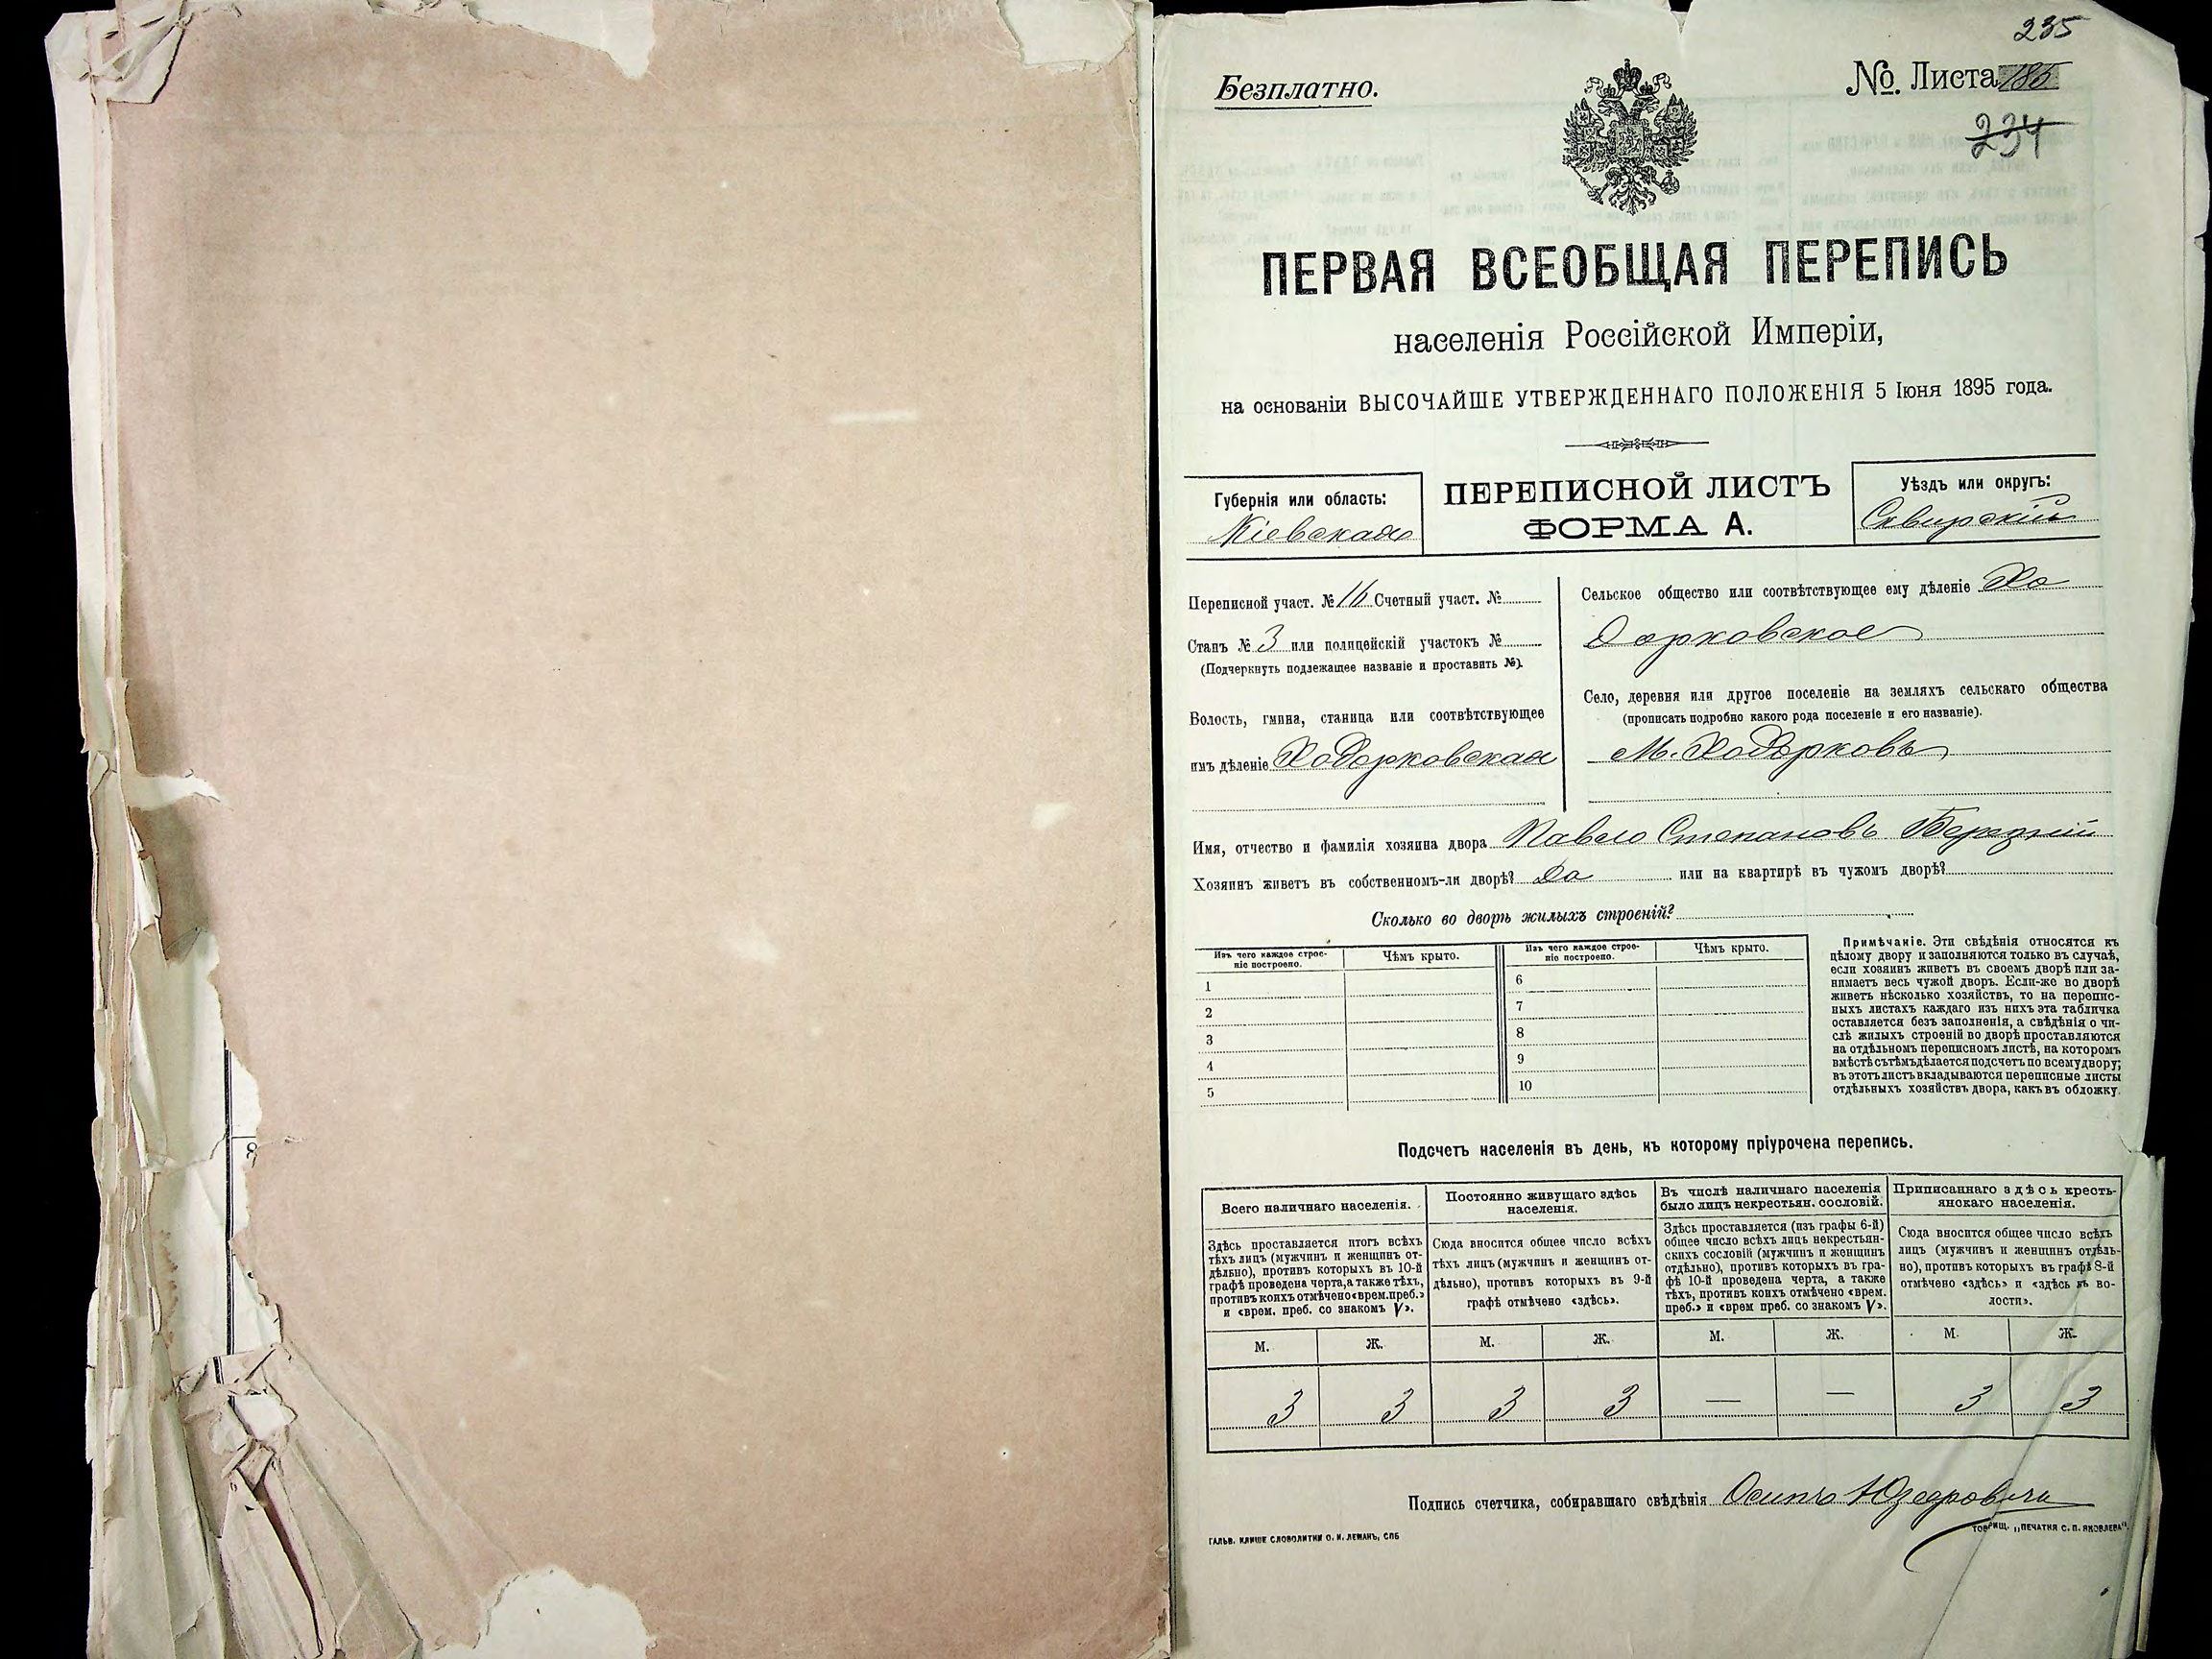 235
Безплатно.
№ Листа 185
234
ПЕРВАЯ ВСЕОБЩАЯ ПЕРЕПИСЬ
населенія Россійской Имперіи,
на основаніи ВЫСОЧАЙШЕ УТВЕРЖДЕННАГО ПОЛОЖЕНІЯ 5 Іюня 1895 года.
Губернія или область:
Кіевская
ПЕРЕПИСНОЙ ЛИСТЪ
ФОРМА А.
Уѣздъ или округъ:
Сквирскій
Переписной участ. № 16 Счетный участ. №
Станъ № 3 или полицейскій участокъ №
(Подчеркнуть подлежащее названіе и проставить №).
Волость, гмина, станица или соотвѣтствующее
имъ дѣленіе Ходорковская
Сельское общество или соотвѣтствующее ему дѣленіе Хо
дорковское
Село, деревня или другое поселеніе на земляхъ сельскаго общества
(прописать подробно какого рода поселеніе и его названіе).
М. Ходорковъ
Имя, отчество и фамилія хозяина двора Павло Степановъ
Хозяинъ живетъ въ собственномъ-ли дворѣ? Да или на квартирѣ въ чужомъ дворѣ?
Сколько во дворѣ жилыхъ строеній?
Изъ чего каждое строе-
ніе построено.
Чѣмъ крыто.
1
2
3
4
5
Изъ чего каждое строе-
ніе построено.
Чѣмъ крыто.
6
7
8
9
10
Примѣчаніе. Эти свѣдѣнія относятся къ
цѣлому двору и заполняются только въ случаѣ,
если хозяинъ живетъ въ своемъ дворѣ или за-
нимаетъ весь чужой дворъ. Если-же во дворѣ
живетъ нѣсколько хозяйствъ, то на перепис-
ныхъ листахъ каждаго изъ нихъ эта табличка
оставляется безъ заполненія, а свѣдѣнія о чи-
слѣ жилыхъ строеній во дворѣ проставляются
на отдѣльномъ переписномъ листѣ, на которомъ
вмѣстѣ съ тѣмъ дѣлается подсчетъ по всему двору;
въ этотъ листъ вкладываются переписные листы
отдѣльныхъ хозяйствъ двора, какъ въ обложку.
Подсчетъ населенія въ день, къ которому пріурочена перепись.
Всего наличнаго населенія.
Здѣсь проставляется итогъ всѣхъ
тѣхъ лицъ (мужчинъ и женщинъ от-
дѣльно), противъ которыхъ въ 10-й
графѣ проведена черта, а также тѣхъ,
противъ коихъ отмѣчено «врем. преб.»
и «врем. преб. со знакомъ V».
М. Ж.
3 3
Постоянно живущаго здѣсь
населенія.
Сюда вносится общее число всѣхъ
тѣхъ лицъ (мужчинъ и женщинъ от-
дѣльно), противъ которыхъ въ 9-й
графѣ отмѣчено «здѣсь».
М. Ж.
3 3
Въ числѣ наличнаго населенія
было лицъ некрестьян. сословій.
Здѣсь проставляется (изъ графы 6-й)
общее число всѣхъ лицъ некрестьян-
скихъ сословій (мужчинъ и женщинъ
отдѣльно), противъ которыхъ въ гра-
фѣ 10-й проведена черта, а также
тѣхъ, противъ коихъ отмѣчено «врем.
преб.» и «врем преб. со знакомъ V».
М. Ж.
— —
Приписаннаго здѣсь кресть-
янскаго населенія.
Сюда вносится общее число всѣхъ
лицъ (мужчинъ и женщинъ отдѣль-
но), противъ которыхъ въ графѣ 8-й
отмѣчено «здѣсь» и «здѣсь въ во-
лости».
М. Ж.
3 3
Подпись счетчика, собиравшаго свѣдѣнія Осипъ
ГАЛЬВ. КЛИШЕ СЛОВОЛИТНИ О. И. ЛЕМАНЪ, СПБ
ТОВАРИЩ. „ПЕЧАТНЯ С. П. ЯКОВЛЕВА“.